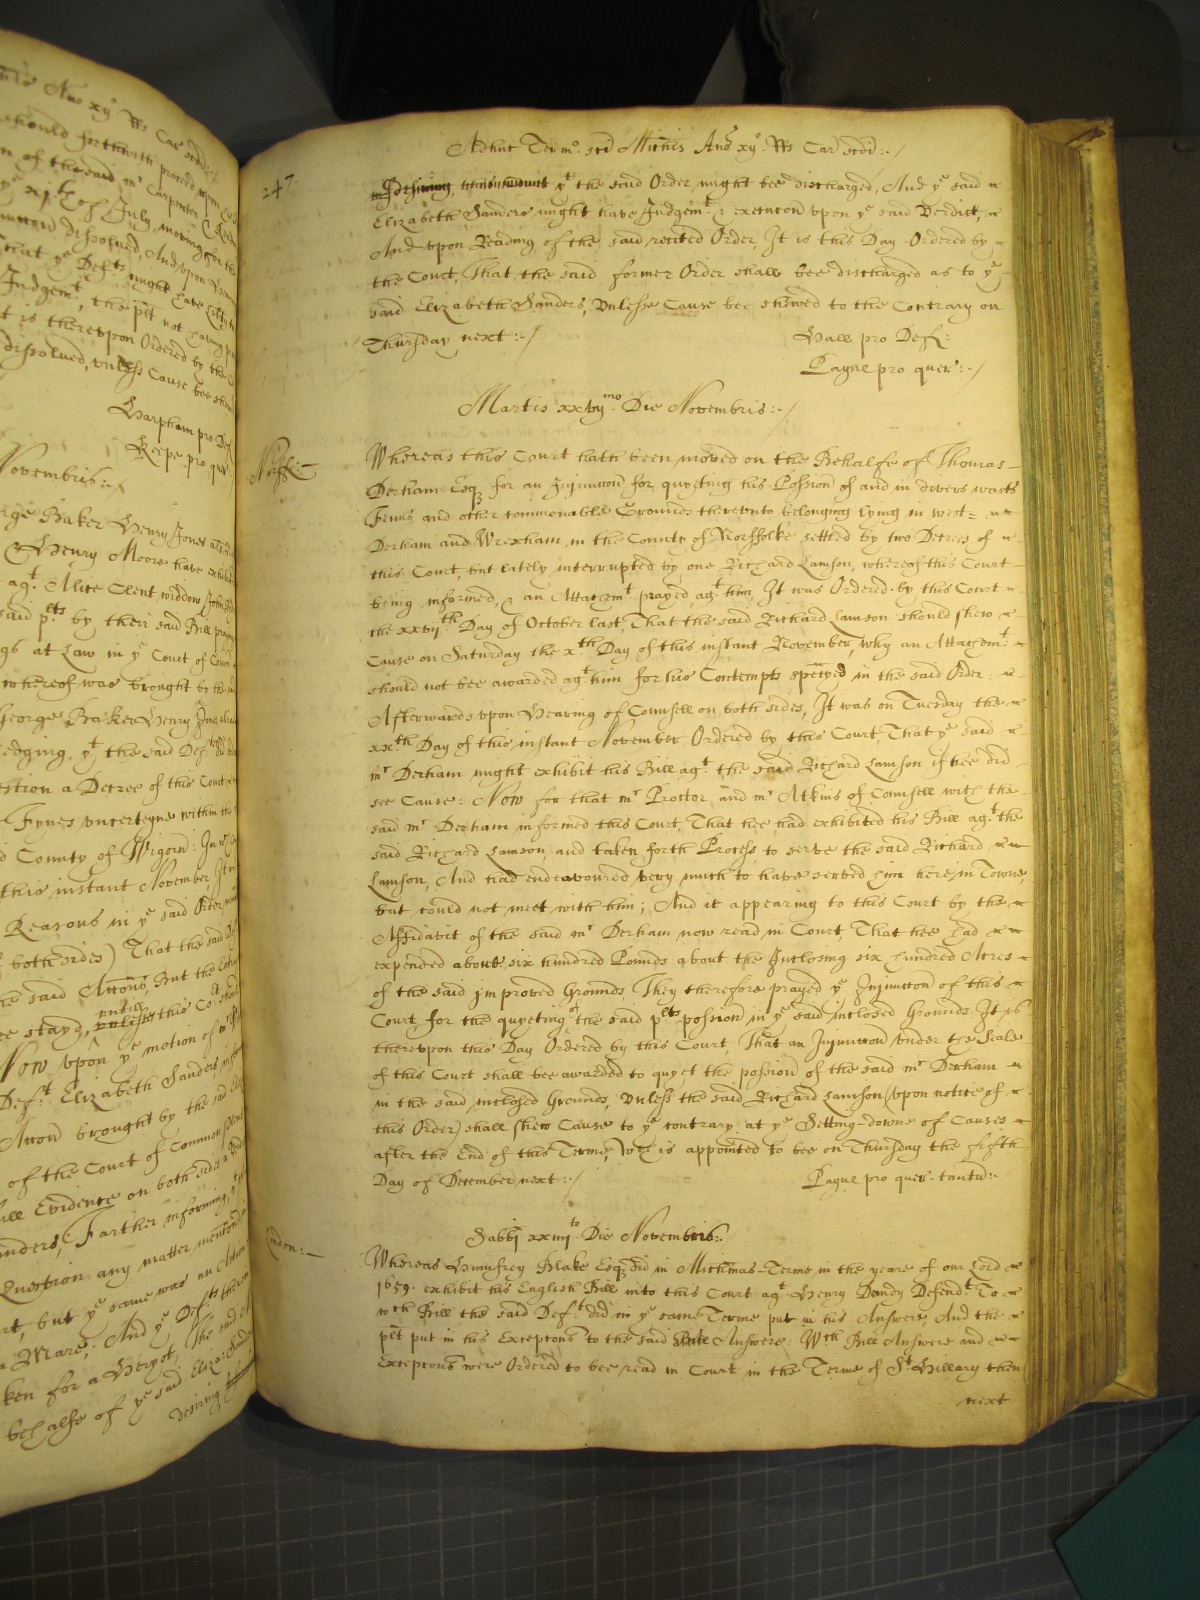 should forthwith proceed upon
of the said mr Carpenter
July, moving for the
dissolved, And upon
that ye Defts might have
Judgemt, the plt not having
it is thereupon Ordered by the
dissolved, unless Cause bee
Harpham pro Def
Keepe pro quer
Novembris:~
George Baker Henry Jones
& Henry Moore have exhibited
agt. Alice Clent widdow John
said plts by their said Bill praying
at Law in ye Court of Common
whereof was brought by the
George Baker Henry Jones
alledging, yt the said Deft did
question a Decree of this Court
County of Wigorn: In
this instant November, It
Reasons in ye said Order
both sides) That the said
the said Accons, But the
bee stayd, untill this Cot
Now upon ye motion of
Deft Elizabeth Sanders
Accon brought by the said
of the Court of Common pleas
full Evidence on both sides
Sanders, Farther informing,
Question any matter mentioned
but ye same was an
a Mare; And ye Defts
taken for a Heryot, The said
behalfe of ye said Eliza: Sanders
desiring
247.
Adhuc Termo. sci Michis Anno xijo. Rs Car scdi:~/
desiring yt the said Order might bee discharged, And ye said
Elizabeth Sanders might have Judgemt. & execucon upon ye said Verdict,
And upon Reading of the said recited Order, It is this Day Ordered by
the Court, That the said former Order shall bee discharged as to ye
said Elizabeth Sanders, Unlesse Cause bee shewed to the Contrary on
Thursday next:~/
Hall pro Def:
Payne pro quer:~/
Martis xxvijmo. Die Novembris:~/
Norff:~
Whereas this Court hath been moved on the Behalfe of Thomas
Derham Esqr for an Injunccon for quyeting his Possion of and in divers wasts
Fenns and other commonable Grounds thereunto belonging lying in West=
Derham and Wrexham in the County of Norffolke settled by two Decrees of
this Court, but lately interrupted by one Richard Lamson, whereof this Court
being informed, & an Attachmt. prayed agt him, It was Ordered by this Court
the xxviith Day of October last, That the said Richard Lamson should shew
Cause on Saturday the xth Day of this instant November, why an Attachmt.
should not bee awarded agt him for his Contempts specyed in the said Order:
Afterwards upon Hearing of Counsell on both sides, It was on Tuesday the
xxth Day of this instant November Ordered by this Court, That ye said
mr Derham might exhibit his Bill agt. the said Richard Lamson if hee did
see Cause: Now for that mr Proctor and mr Atkins of Counsell with the
said mr Derham informed this Court, That hee had exhibited his Bill agt. the
said Richard Lamson, and taken forth Process, to serve the said Richard
Lamson, And had endeavoured very much to have served him here in Towne,
but could not meet with him; And it appearing to this Court by the
Affidavit of the said mr Derham now read in Court, That hee had
expended above six hundred Pounds about the Inclosing six hundred Acres
of the said improved Grounds, They therefore prayed ye Injunccon of this
Court, for the quyeting of the said plts possion in ye said inclosed Grounds. It is
thereupon this Day Ordered by this Court, That an Injunccon under the Seale
of this Court shall bee awarded to quyet the possion of the said mr Derham
in the said inclosed Grounds, Unless the said Richard Lamson (upon notice of
this Order) shall shew Cause to ye contrary at ye Setting-downe of Causes
after the End of this Terme, wch is appointed to bee on Thursday the fifth
Day of December next:~/
Payne pro quer. tantu:~
Sabbi xxiiiito Die Novembris:
London:~
Whereas Humfrey Blake Esqr did in Michmas-Terme in the yeare of our Lord
1659. exhibit his English Bill into this Court agt. Henry Dandy Defendt. To
wch Bill the said Deft did in ye same Terme put in his Answere, And the
plt put in his Exceptons to the said Answere: Wch. Bill Answere and
Exceptons were Ordered to bee read in Court in the Terme of St. Hillary then
next